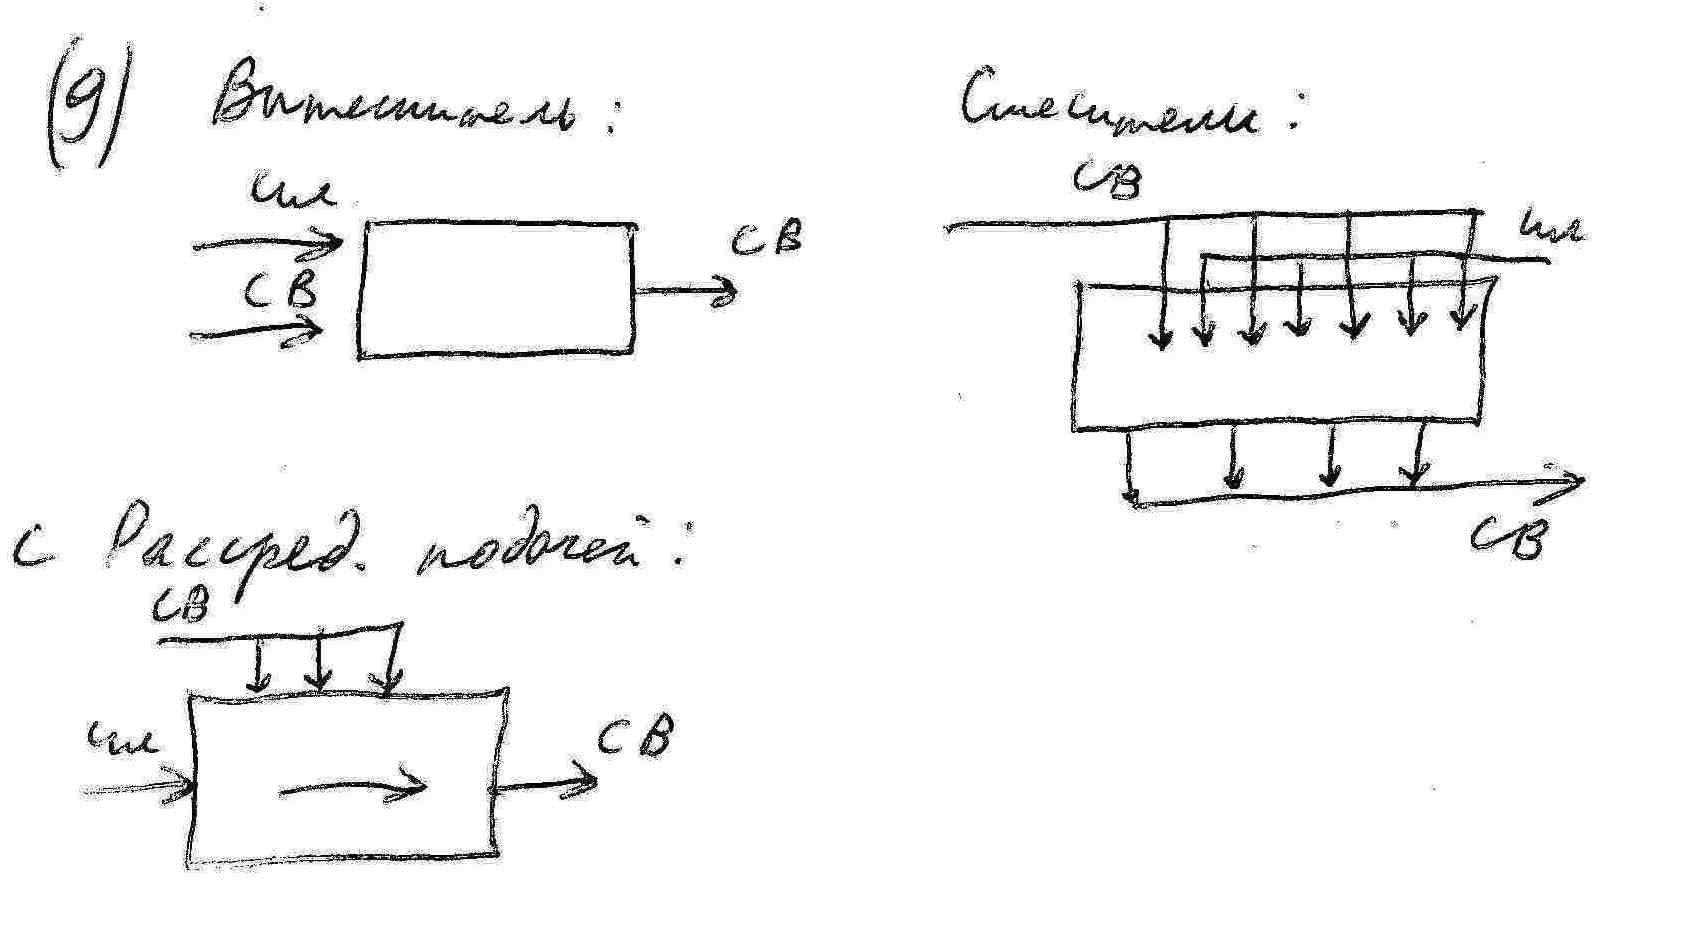 (9) Вытеснитель:
ил
СВ
СВ
Смеситель:
СВ
ил
СВ
с Рассред. подачей:
СВ
ил
СВ